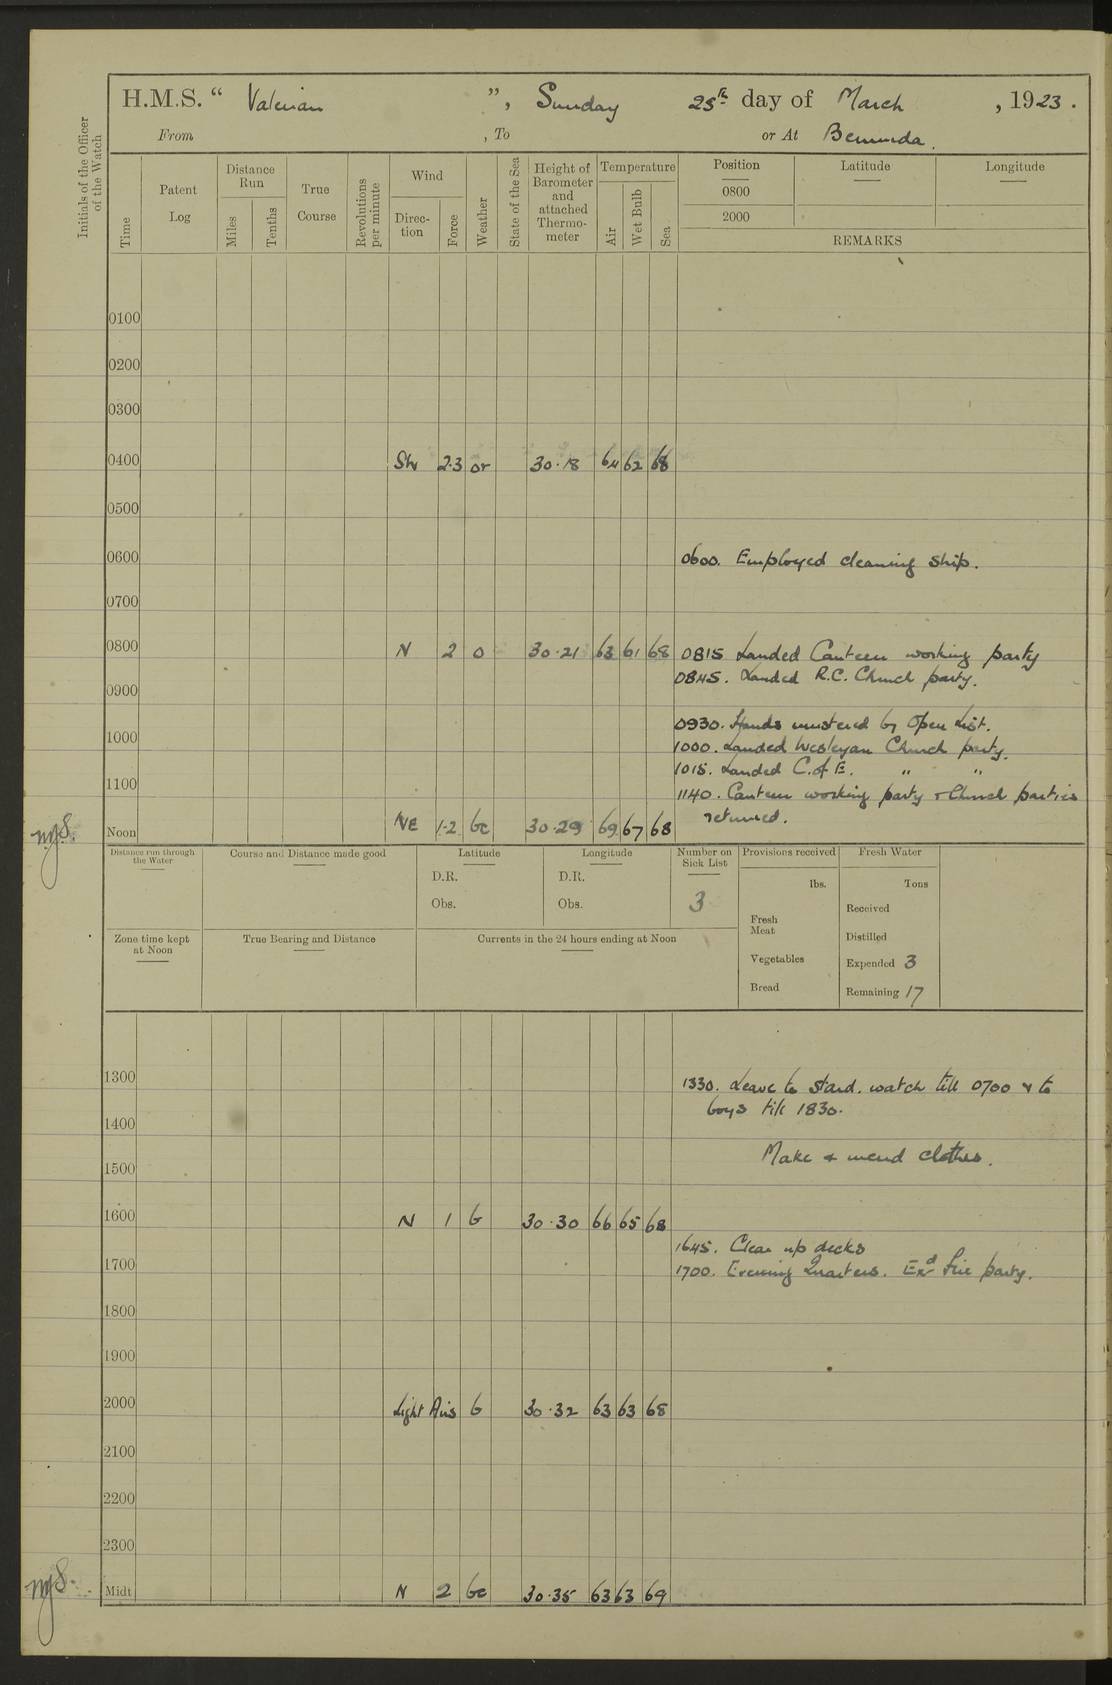 H.M.S. “ Valerian ”, Sunday 25th day of March , 1923.
From , To or At Bermuda.
Initials of the Officer of the Watch
Time
Patent Log
Distance Run
Miles
Tenths
True Course
Revolutions per minute
Wind
Direc-tion
Force
Weather
State of the Sea
Height of Barometer and attached Thermo-meter
Temperature
Air
Wet Bulb
Sea
Position
Latitude
Longitude
0800
2000
REMARKS
0100
0200
0300
0400 SW 2·3 or 30·18 64 62 68
0500
0600 0600. Employed cleaning ship.
0700
0800 N 2 o 30·21 63 61 68 0815 Landed Canteen working party
0845. Landed R.C. Church party.
0900
0930. Hands mustered by Open List.
1000 1000. Landed Wesleyan Church party.
1015. Landed C. of E. " "
1100 1140. Canteen working party & Church parties
Noon NE 1-2 bc 30·29 69 67 68 returned.
Distance run through the Water
Course and Distance made good
Latitude
D.R.
Obs.
Longitude
D.R.
Obs.
Number on Sick List
3
Provisions received
lbs.
Fresh Meat
Vegetables
Bread
Fresh Water
Tons
Received
Distilled
Expended 3
Remaining 17
Zone time kept at Noon
True Bearing and Distance
Currents in the 24 hours ending at Noon
1300 1330. Leave to Stard. watch till 0700 & to
boys till 1830.
1400
Make & mend clothes.
1500
1600 N 1 b 30·30 66 65 68
1645. Clear up decks
1700 1700. Evening Quarters. Exd Fire party.
1800
1900
2000 Light Airs b 30·32 63 63 68
2100
2200
2300
Midt N 2 bc 30·35 63 63 69